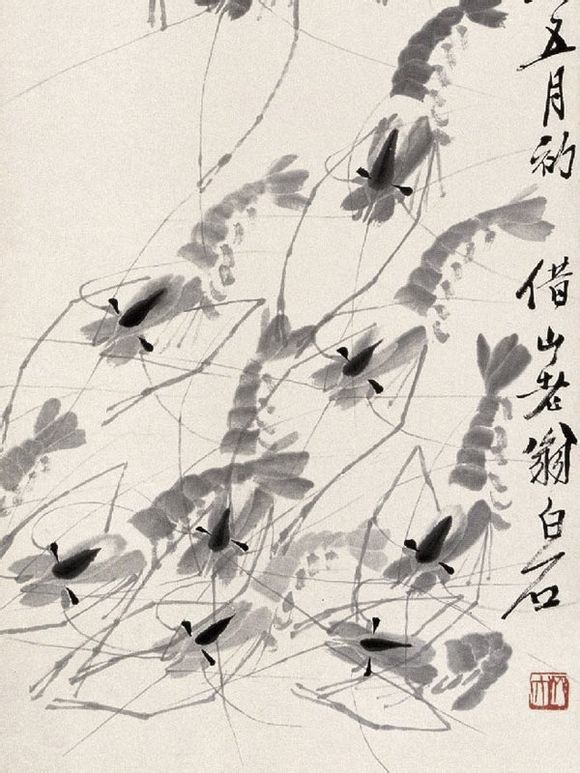 五月初 借山老翁白石